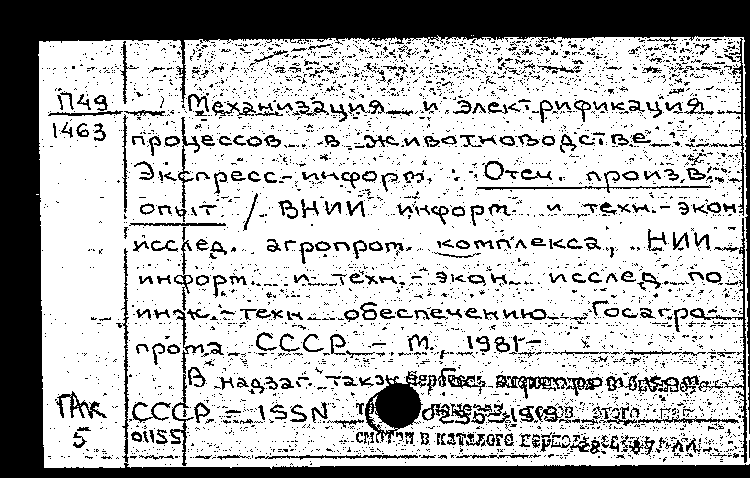 П49
1463
Механизация и электрификация
процессов в животноводстве :
Экспресс-информ. : Отеч. произв.
опыт / ВНИИ информ. и техн.-экон.
исслед. агропром. комплекса, НИИ
информ. и техн.-экон. исслед. по
инж.-техн. обеспечению Госагро-
прома СССР. - М., 1981-
В надзаг. также:
ГАК СССР. - ISSN
5 01155 смотри в каталоге